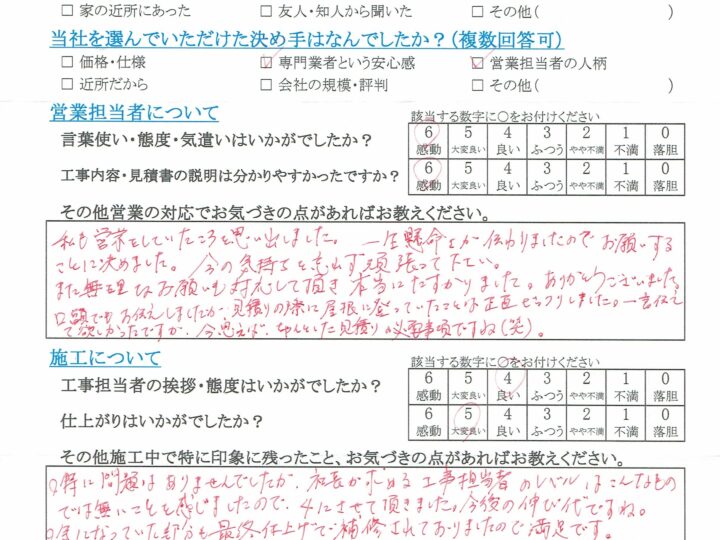 □ 家の近所にあった □ 友人・知人から聞いた □ その他( )
当社を選んでいただけた決め手はなんでしたか?(複数回答可)
□ 価格・仕様 ☑ 専門業者という安心感 ☑ 営業担当者の人柄
□ 近所だから □ 会社の規模・評判 □ その他( )
営業担当者について 該当する数字に○をお付けください
言葉使い・態度・気遣いはいかがでしたか? 6 5 4 3 2 1 0
感動 大変良い 良い ふつう やや不満 不満 落胆
工事内容・見積書の説明は分かりやすかったですか? 6 5 4 3 2 1 0
感動 大変良い 良い ふつう やや不満 不満 落胆
その他営業の対応でお気づきの点があればお教えください。
私も営業をしていたころを思い出しました。一生懸命さが伝わりましたのでお願いする
ことに決めました。今の気持ちを忘れず頑張って下さい。
また無理なお願いも対応して頂き本当にたすかりました。ありがとうございました。
口頭でもお伝えしましたが、見積りの際に屋根に登っていたことは正直ビックリしました。一言伝え
て欲しかったですが、今思えば、きちんとした見積りの必要事項ですね(笑)。
施工について 該当する数字に○をお付けください
工事担当者の挨拶・態度はいかがでしたか? 6 5 4 3 2 1 0
感動 大変良い 良い ふつう やや不満 不満 落胆
仕上がりはいかがでしたか? 6 5 4 3 2 1 0
感動 大変良い 良い ふつう やや不満 不満 落胆
その他施工中で特に印象に残ったこと、お気づきの点があればお教えください。
特に問題はありませんでしたが、社長が求める工事担当者のレベルはこんなもの
では無いことを感じましたので、4にさせて頂きました。今後の伸び代ですね。
気になっていた部分も最終仕上げで補修されておりましたので満足です。